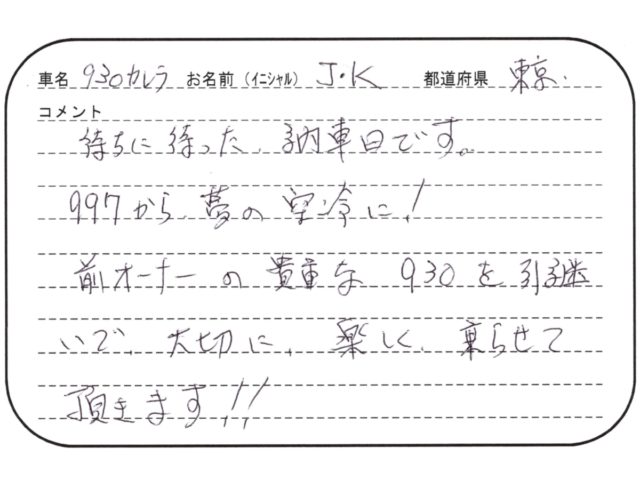 車名 930カレラ お名前 (イニシャル) J・K 都道府県 東京.
コメント
待ちに待った、納車日です。
997から、夢の空冷に!
前オーナーの貴重な930を引継
いで、大切に、楽しく、乗らせて
頂きます!!